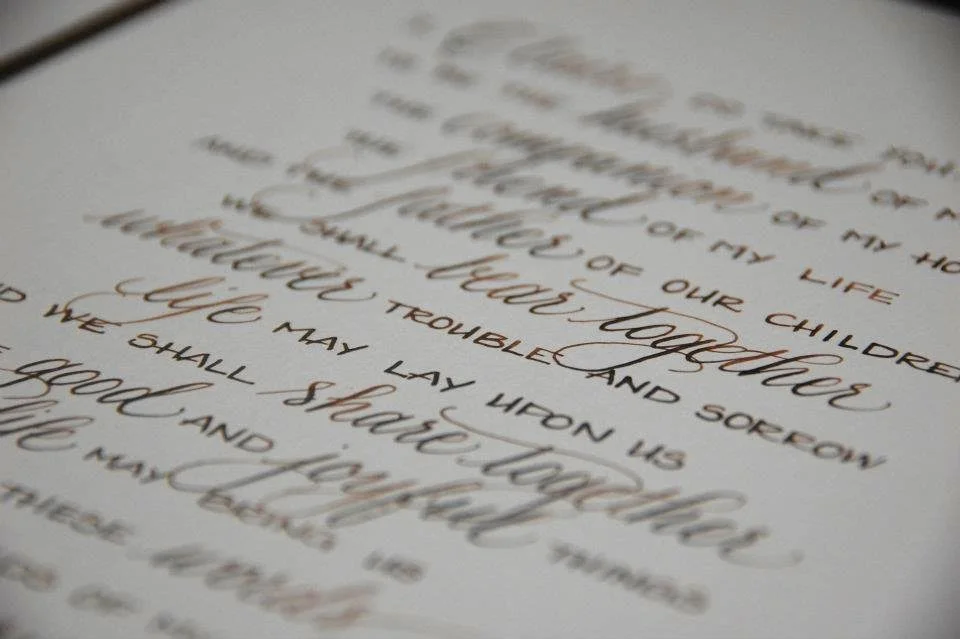 I DO TAKE YOU
TO BE THE husband OF M
THE companion OF MY HO
THE friend OF MY LIFE
AND THE father OF OUR CHILDRE
WE SHALL bear together
whatever TROUBLE AND SORROW
life MAY LAY UPON US
ND WE SHALL share together
good AND joyful THINGS
life MAY BRING US
THESE words
DS OF